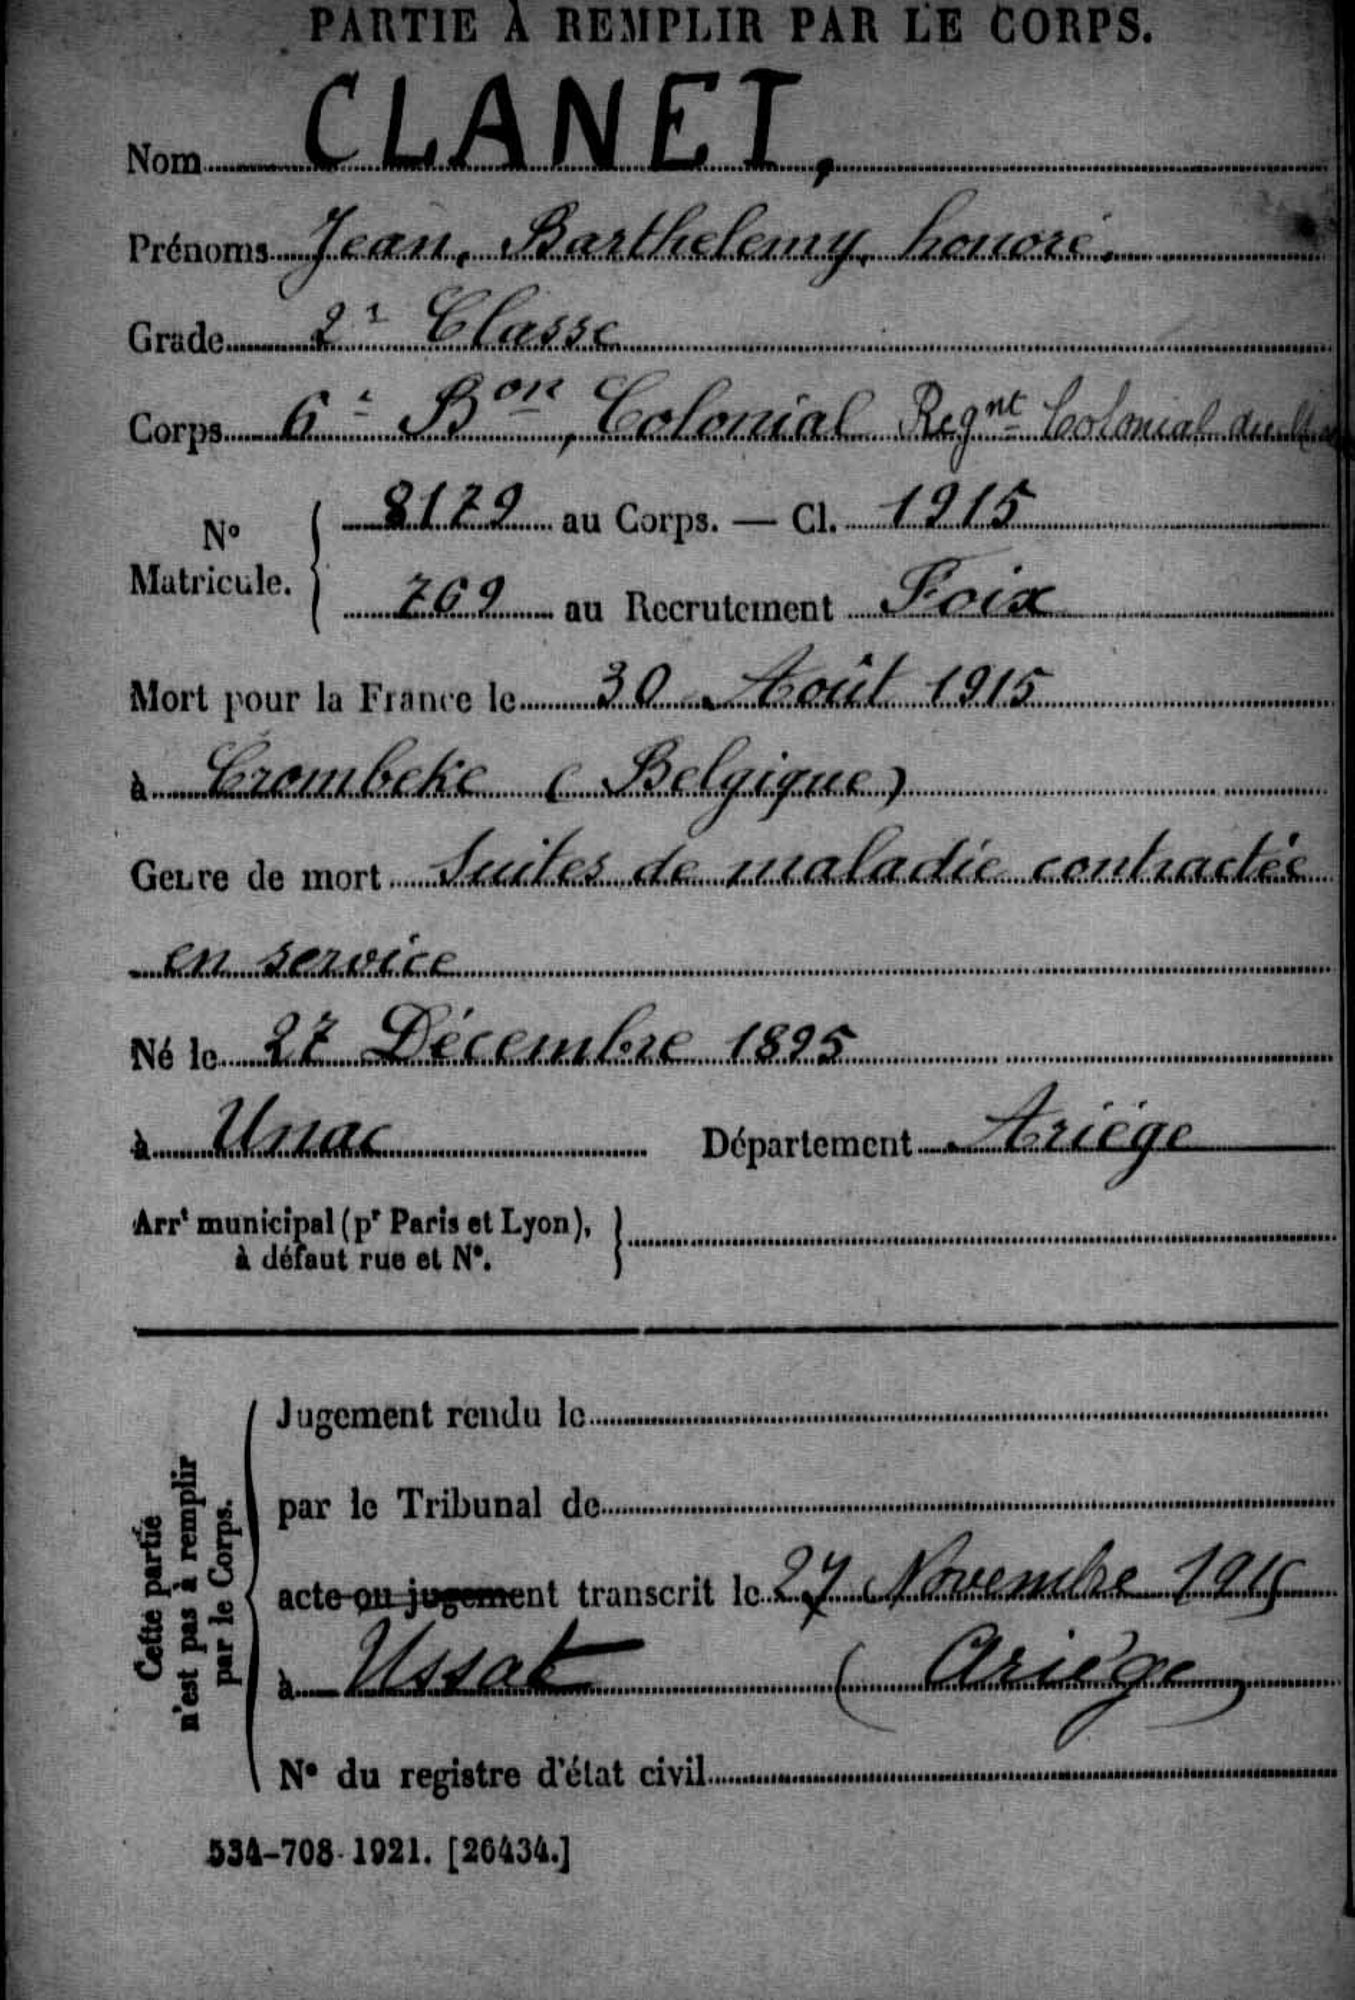 PARTIE À REMPLIR PAR LE CORPS.
Nom CLANET,
Prénoms Jean, Barthelemy, honoré.
Grade 2e Classe
Corps 6e Bon, Colonial Regnt Colonial du
No Matricule. 8179 au Corps. — Cl. 1915
769 au Recrutement Foix
Mort pour la France le 30 Août 1915
à Crombeke (Belgique)
Genre de mort Suites de maladie contractée
en service
Né le 27 Décembre 1895
à Unac Département Ariège
Arrt municipal (pr Paris et Lyon),
à défaut rue et No.
Cette partie
n'est pas à remplir
par le Corps.
Jugement rendu le
par le Tribunal de
acte ou jugement transcrit le 27 Novembre 1915
à Ussat (Ariège)
No du registre d'état civil
534-708-1921. [26434.]